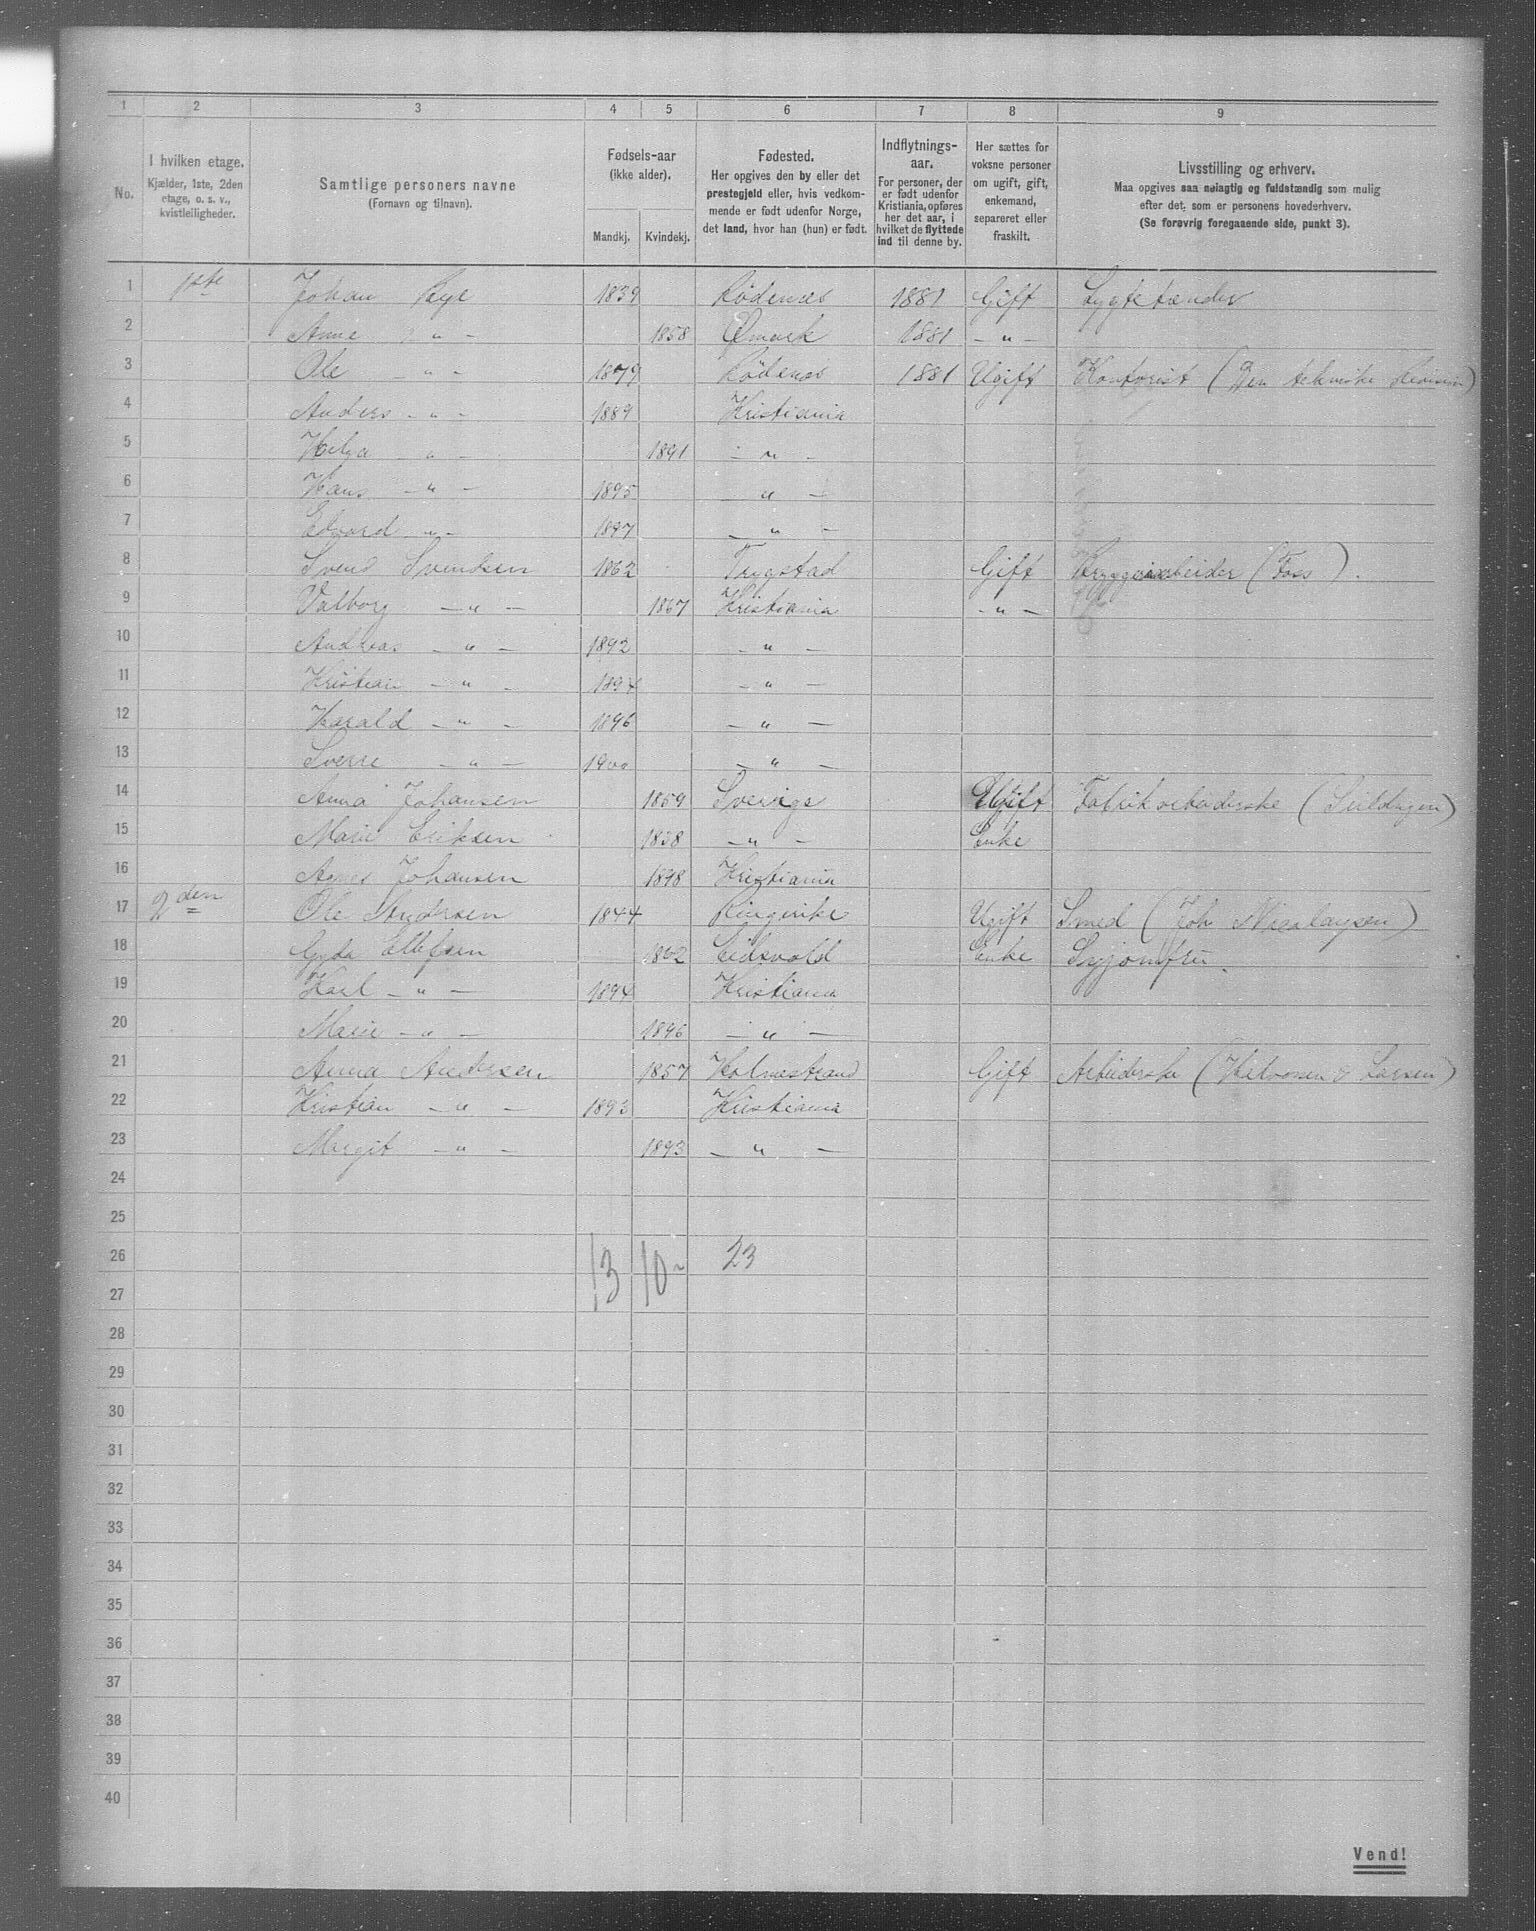 1 2 3 4 5 6 7 8 9
No.
I hvilken etage.
Kjælder, 1ste, 2den
etage, o. s. v.,
kvistleiligheder.
Samtlige personers navne
(Fornavn og tilnavn).
Fødsels-aar
(ikke alder).
Mandkj. Kvindekj.
Fødested.
Her opgives den by eller det
prestegjeld eller, hvis vedkom-
mende er født udenfor Norge,
det land, hvor han (hun) er født.
Indflytnings-
aar.
For personer, der
er født udenfor
Kristiania, opføres
her det aar, i
hvilket de flyttede
ind til denne by.
Her sættes for
voksne personer
om ugift, gift,
enkemand,
separeret eller
fraskilt.
Livsstilling og erhverv.
Maa opgives saa nøiagtig og fuldstændig som mulig
efter det, som er personens hovederhverv.
(Se forøvrig foregaaende side, punkt 3).
1 1ste Johan Rye 1839 Rødenes 1881 Gift Lygtetænder
2 Anne " - 1858 Ømark 1881 - " -
3 Ole " - 1879 Rødenes 1881 Ugift Kontorist (Den tekniske Revision)
4 Anders - " - 1889 Kristiania
5 Helga - " - 1891 - " -
6 Hans - " - 1895 - " -
7 Edvard - " - 1897 - " -
8 Svend Svendsen 1862 Trygstad Gift Bryggeriarbeider (Foss).
9 Valborg - " - 1867 Kristiania - " -
10 Andreas - " - 1892 - " -
11 Kristian - " - 1894 - " -
12 Harald - " - 1896 - " -
13 Sverre - " - 1900 - " -
14 Anna Johansen 1859 Sverige Ugift Fabrikarbeiderske (Seildugen)
15 Marie Eriksen 1838 - " - Enke
16 Agnes Johansen 1898 Kristiania
17 2den Ole Andersen 1844 Ringerike Ugift Smed (Joh Nicolaysen)
18 Gyda Ellefsen 1862 Eidsvold Enke Syjomfru.
19 Karl - " - 1894 Kristiania
20 Marie - " - 1896 - " -
21 Anna Andersen 1857 Holmestrand Gift Arbeiderske (Halvorsen & Larsen)
22 Kristian - " - 1893 Kristiania
23 Margit - " - 1893 - " -
24
25
26 13 10 - 23
27
28
29
30
31
32
33
34
35
36
37
38
39
40
Vend!